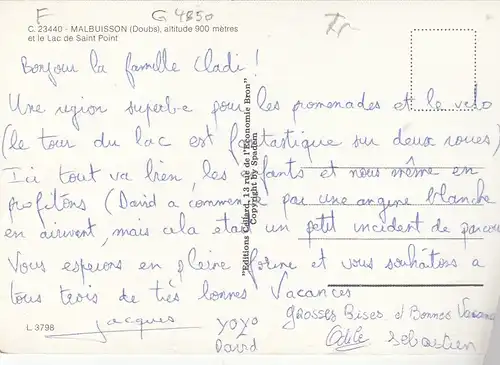 F G 4850 Tr
C. 23440 - MALBUISSON (Doubs), altitude 900 mètres
et le Lac de Saint Point
Bonjour la famille Cladi!
Une région superbe pour les promenades et le vélo
(le tour du lac est fantastique sur deux roues)
Ici tout va bien, les enfants et nous même en
profitons (David a commencé par une angine blanche
en arrivant, mais cela était un petit incident de parcours
Vous espérons en pleine forme et vous souhaitons a
tous trois de très bonnes Vacances
Jacques YOYO Grosses Bises et Bonnes Vacances
David Odile Sebastien
L 3798
"Editions Cellard, 13 rue de l'Economie Bron"
Copyright by Spadem